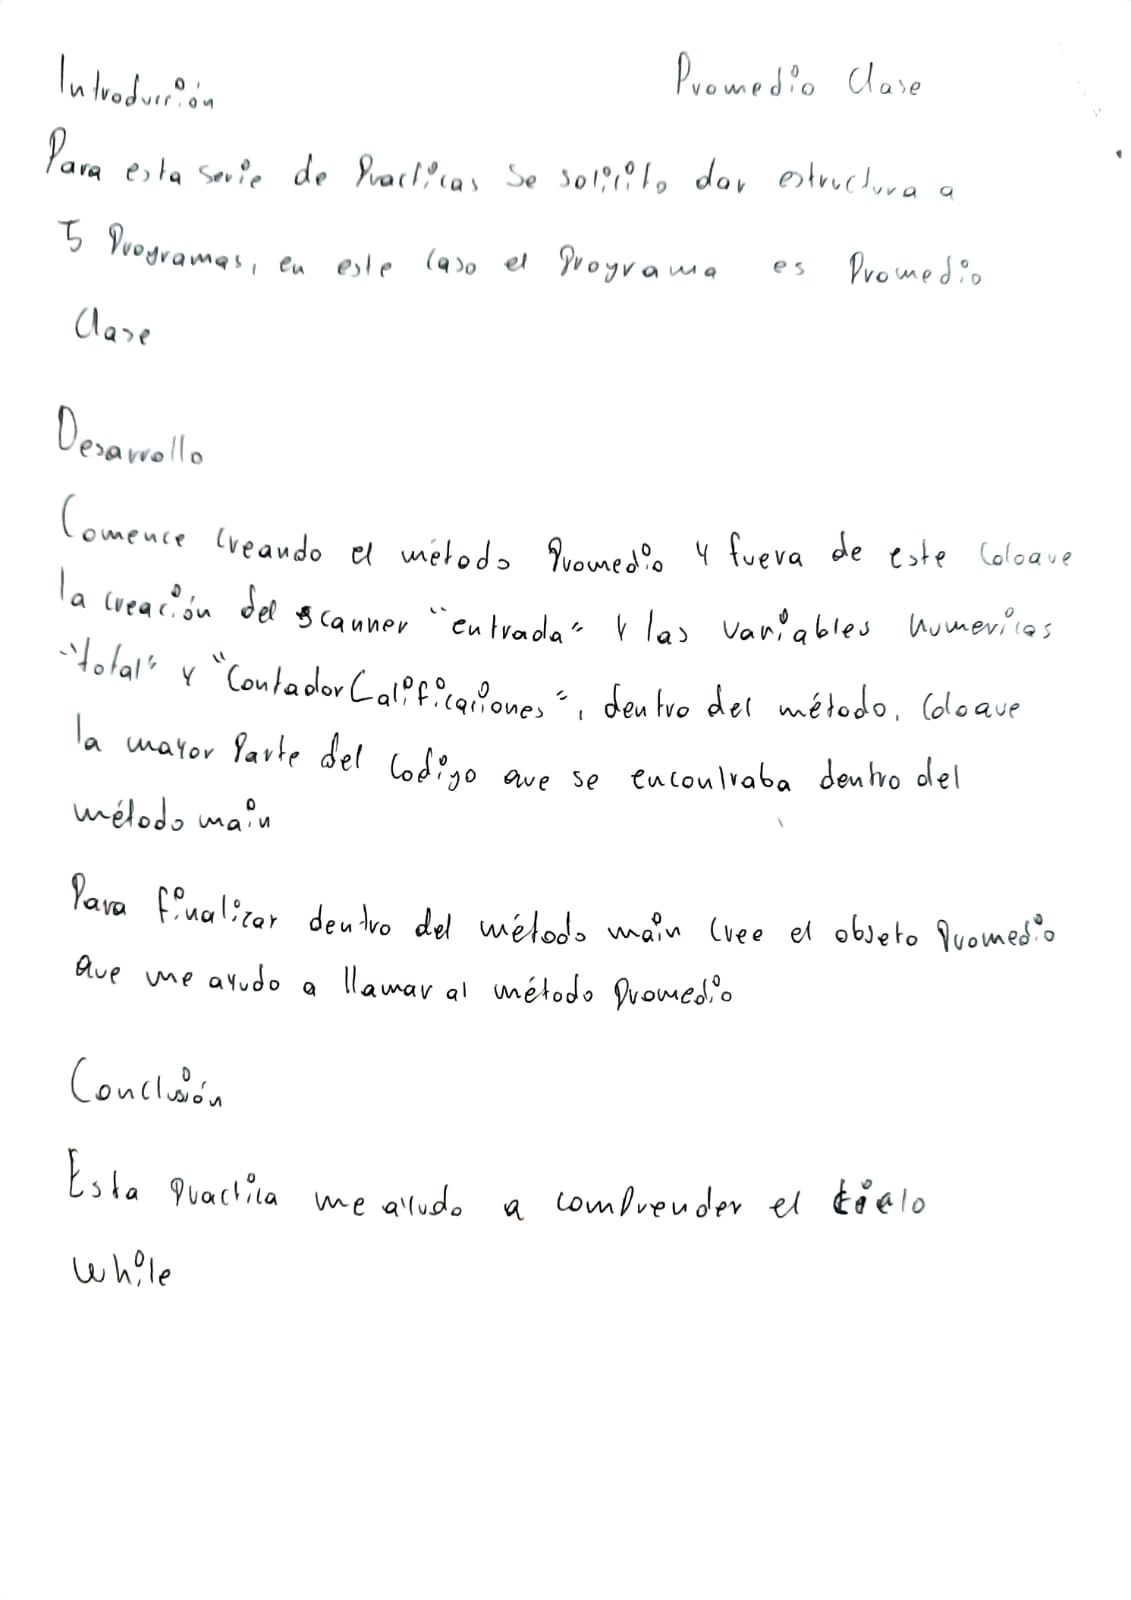 Introducción
Promedio Clase
Para esta serie de Practicas se solicito dar estructura a
5 Programas, en este caso el Programa es Promedio
Clase
Desarrollo
Comence Creando el método Promedio y fuera de este Coloque
la creación del scanner "entrada" y las variables numericas
"total" y "Contador Calificaciones", dentro del método, Coloque
la mayor Parte del Codigo que se encontraba dentro del
método main
Para finalizar dentro del método main Cree el objeto Promedio
que me ayudo a llamar al método Promedio
Conclusión
Esta Practica me ayudo a comprender el ciclo
while